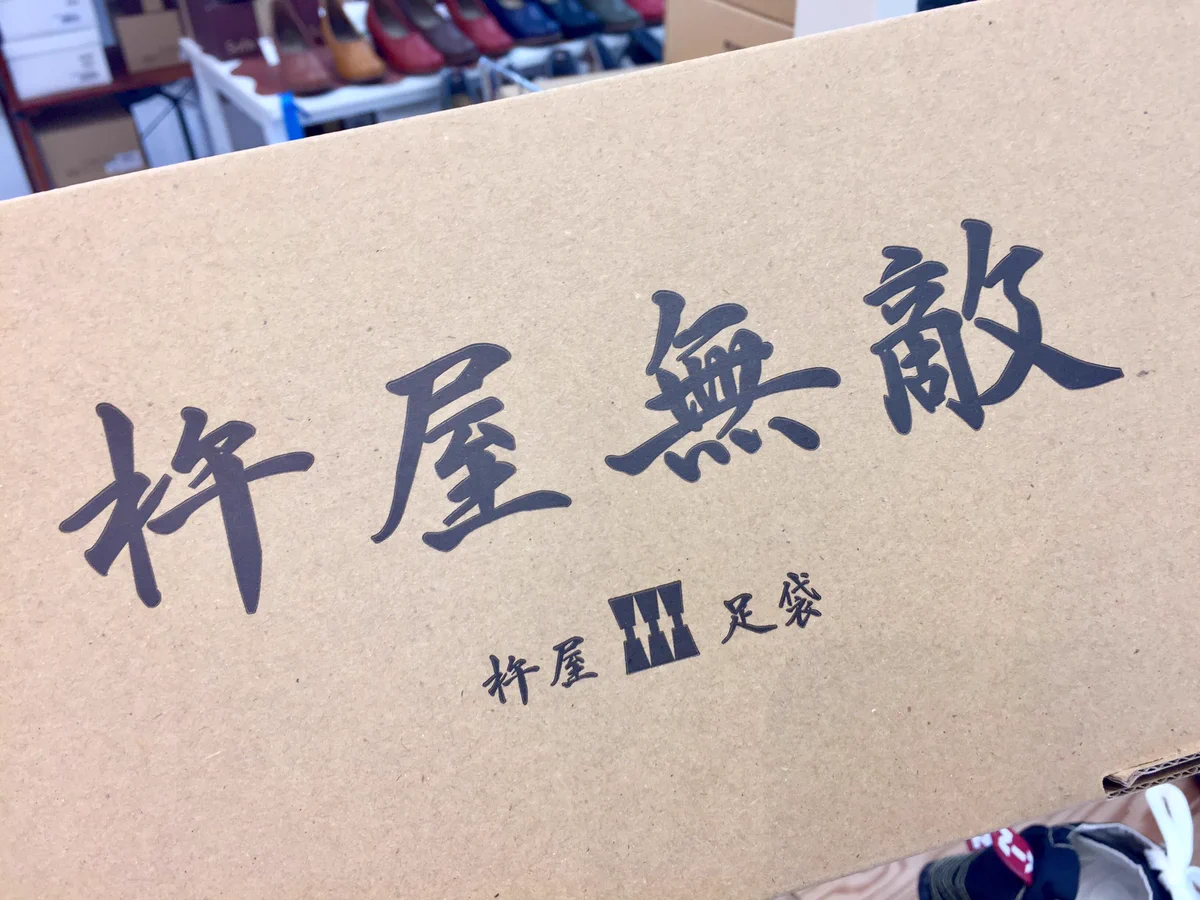 杵屋無敵
杵屋 足袋